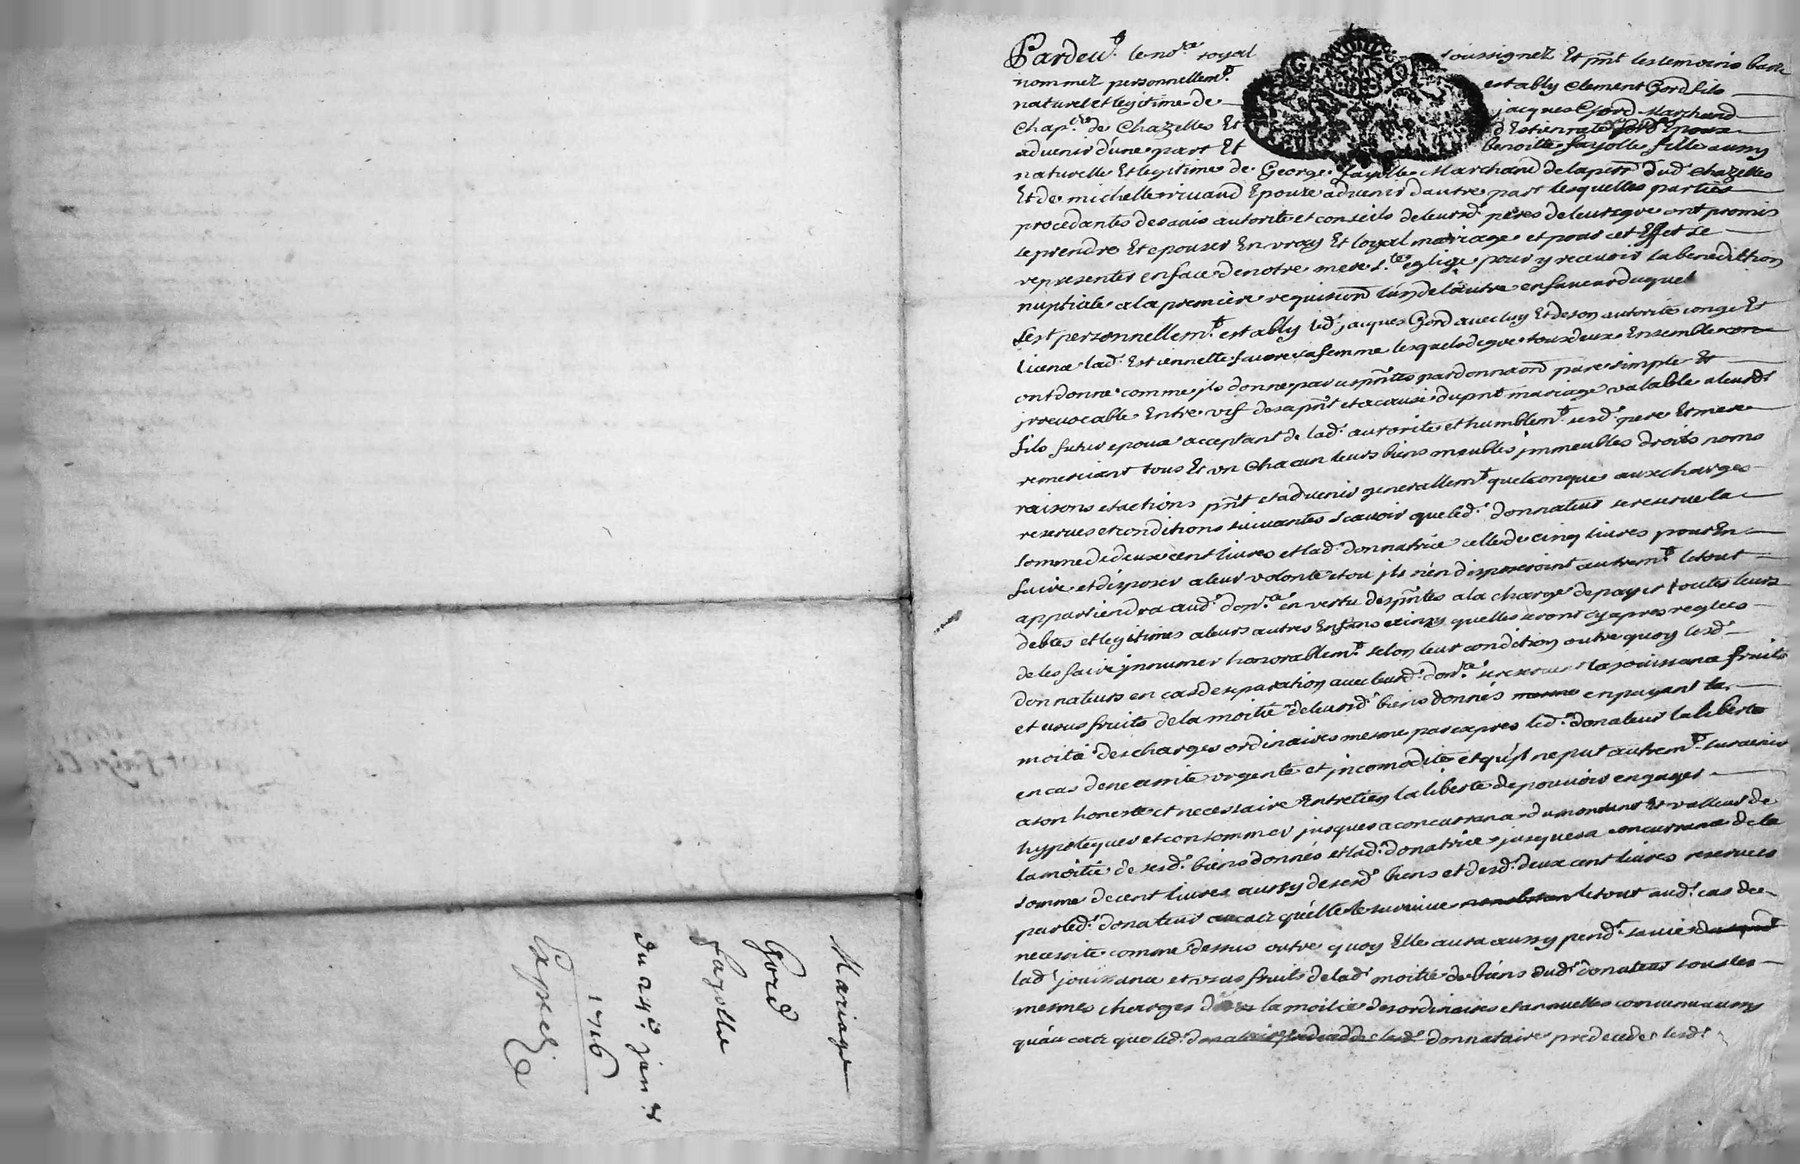 Mariage
Gord
fayolle
du 24e. jan.er
1716
Expedié
Pardevt. le nore royal soussignez Et pnt les temoins bas
nommez personnellemt. estably Clement Gord fils
naturel et legitime de jacques Gord Marchand
Chap.er de Chazelles Et d'Estiennette Epoux
advenir d'une part Et benoitte fayolle fille aussy
naturelle Et legitime de George fayolle Marchand de la dud. Chazelles
Et de michelle rivand Epouze advenir d'autre part lesquelles parties
procedantes des avis autorité et conseils de leursd. peres de leur gre ont promis
se prendre Et epouser En vray Et loyal mariage et pour cet Effet se
representer en face de notre mere ste. eglize pour y recevoir la benediction
nuptiale a la premiere requisition l'un de l'autre en faveur duquel
s'est personnellemt. estably led. jacques Gord avec luy Et de son autorité conge Et
licence lad. Estiennette favre sa femme lesquels de gre tous deux Ensemble
ont donne comme ils donne par ces pntes par donnaon pure simple Et
jrrevocable Entre vif des a pnt et a cause du pnt mariage valable a leurd.
fils futur epoux acceptant de lad. autorité et humblemt. sesd. pere Et mere
remerciant tous Et un Chacun leurs biens meubles jmmeubles droits noms
raisons et actions pnt et advenir generallemt. quelconques aux charges
reserves et conditions suivantes scavoir que led. donnateur se reserve la
somme de deux cent livres et lad. donnatrice celle de cinq livres pour En
faire et disposer a leur volonté et ou jls n'en disposeroint autremt. le tout
appartiendra aud. donre. en vertu des pntes a la charge de payer toutes leurs
debtes et legitimes a leurs autres Enfans quelles seront cy apres reglees
de les faire jnnumer honorablemt. selon leur condition outre quoy lesd.
donnateurs en cas de separation avec leurd. donre. se reserve la jouissance fruits
et usus fruits de la moitié de leursd. biens donnés en payant la
moitié des charges ordinaires mesme par expres led. donateur la liberté
en cas de necessité urgente et jncomodité et qu'il ne put autremt. survenir
a son honeste et necessaire Entretien la liberté de pouvoir engager
hypotequer et consommer jusques a concurrance du montant Et valleur de
la moitié de sesd. biens donnés et lad. donatrice jusques a concurrance de la
somme de cent livres aussy de sesd. biens et desd. deux cent livres reservees
par led. donateur au cas qu'elle le survive le tout aud. cas de
necessité comme dessus outre quoy Elle aura aussy pendt. sa vie
lad. jouissance et usus fruits de lad. moitié de biens dud. donateur sous les
mesmes charges de la moitié des ordinaires et anuelles convenu aussy
qu'au cas que led. donnataire predecede lesd.